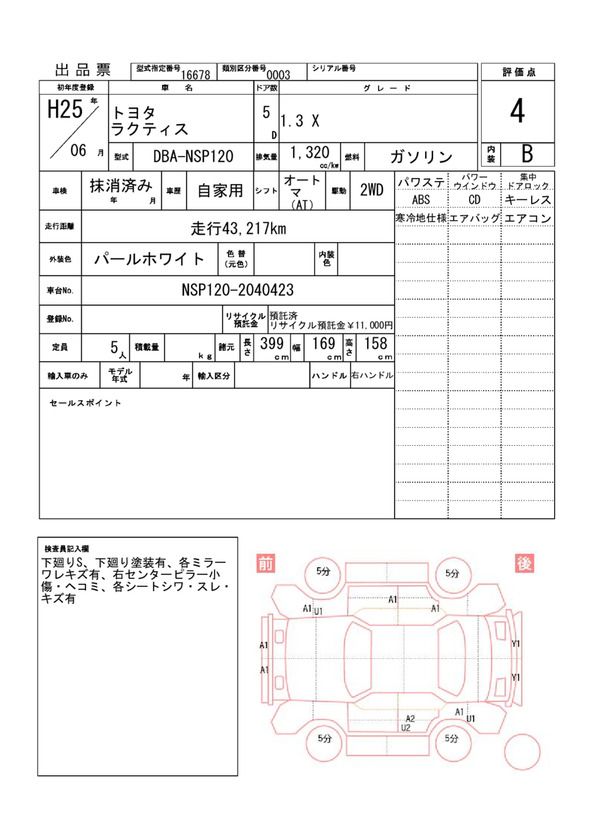 出品票
型式指定番号 16678 類別区分番号 0003 シリアル番号
評価点
初年度登録 車名 ドア数 グレード
H25年 トヨタ 5 1.3 X 4
ラクティス D
06月 型式 DBA-NSP120 排気量 1,320 cc/kw 燃料 ガソリン 内装 B
車検 抹消済み 年 月 車歴 自家用 シフト オートマ(AT) 駆動 2WD
パワステ パワーウインドウ 集中ドアロック
ABS CD キーレス
寒冷地仕様 エアバッグ エアコン
走行距離 走行43,217km
外装色 パールホワイト 色替(元色) 内装色
車台No. NSP120-2040423
登録No. リサイクル預託金 預託済
リサイクル預託金￥11,000円
定員 5人 積載量 kg 諸元 長さ 399cm 幅 169cm 高さ 158cm
輸入車のみ モデル年式 年 輸入区分 ハンドル 右ハンドル
セールスポイント
検査員記入欄
下廻りS、下廻り塗装有、各ミラー
ワレキズ有、右センターピラー小
傷・ヘコミ、各シートシワ・スレ・
キズ有
前 後
5分 5分
A1 A1 U1 A1
A1 Y1
A1 Y1
A2 A1 U1
U2
5分 5分